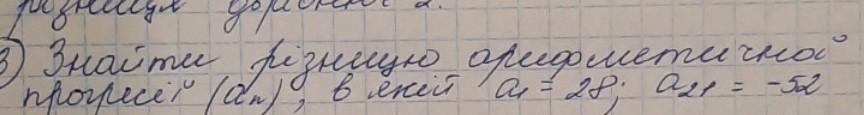 різниця дорівнює 2.
3) Знайти різницю арифметичної
прогресії (aₙ), в якій a₁ = 28; a₂₁ = -52